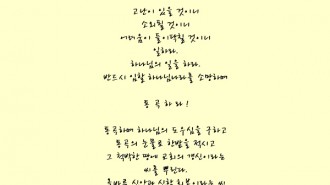 고난이 있을 것이니
소외될 것이니
어려움이 들이닥칠 것이니
일하라.
하나님의 일을 하라.
반드시 임할 하나님나라를 소망하며
통 곡 하 라 !
통곡하며 하나님의 도우심을 구하고
통곡의 눈물로 한밤을 적시고
그 척박한 땅에 교회의 갱신이라는
씨를 뿌린다.
올바른 신앙과 신학 회복이라는 씨